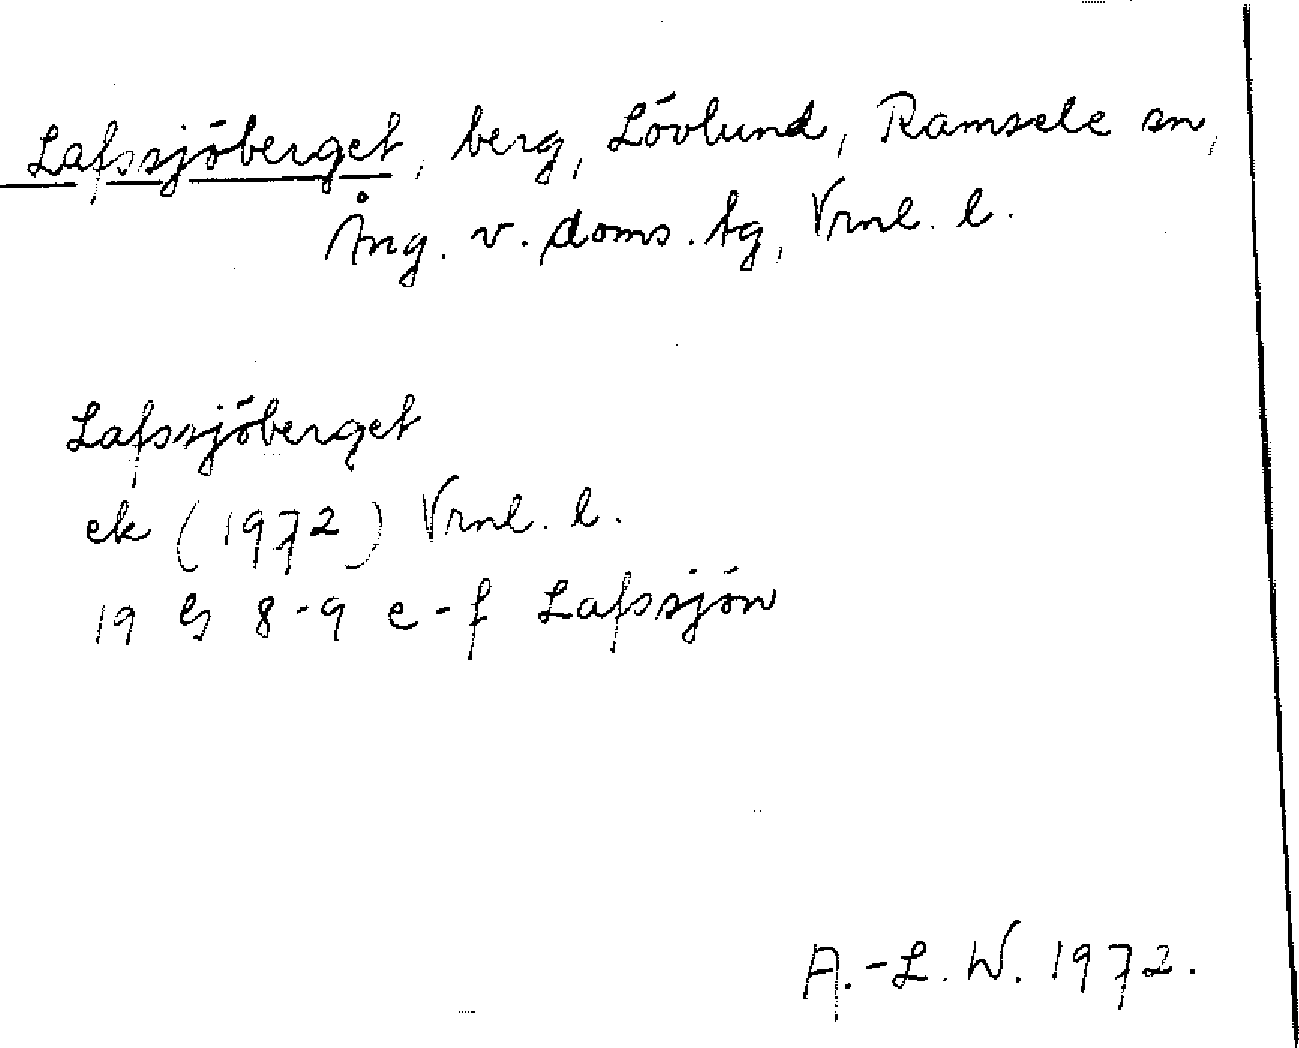 Lafssjöberget, berg, Lövlund, Ramsele sn,
Ång. v. doms. tg, Vrnl. l.
Lafssjöberget
ek (1972) Vrnl. l.
19 G 8-9 e-f Lafssjön
A.-L. W. 1972.